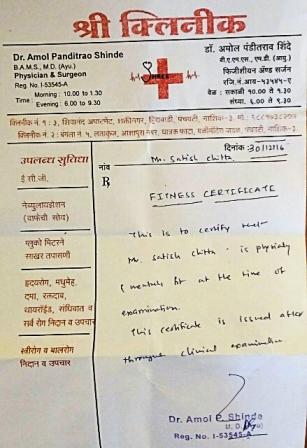 श्री क्लिनीक
Dr. Amol Panditrao Shinde
B.A.M.S., M.D. (Ayu.)
Physician & Surgeon
Reg. No. I-53545-A
Morning : 10.00 to 1.30
Time :
Evening : 6.00 to 9.30
SHREE
डॉ. अमोल पंडीतराव शिंदे
बी.ए.एम.एस., एम.डी. (आयु.)
फिजीशीयन अँण्ड सर्जन
रजि.नं. आय-५३५४५-ए
वेळ : सकाळी १०.०० ते १.३०
संध्या. ६.०० ते ९.३०
क्लिनीक नं. १ : ३, शिवानंद अपार्टमेंट, पंचवटी, नाशिक-३.
क्लिनीक नं. २ :
दिनांक 30/12/16
नांव Mr. Satish Chitta
उपलब्ध सुविधा
ई.सी.जी.
नेब्युलायझेशन
(वाफेची सोय)
ग्लुको मिटरने
साखर तपासणी
हृदयरोग, मधुमेह,
दमा, रक्तदाब,
थायरॉईड, संधिवात व
सर्व रोग निदान व उपचार
स्त्रीरोग व बालरोग
निदान व उपचार
℞
FITNESS CERTIFICATE
This is to certify that
Mr. Satish Chitta is physicaly
& mentaly fit at the time of
examination.
This certificate is issued after
through clinical examination
Dr. Amol P. Shinde
M.D. (Ayu)
Reg. No. I-53545-A